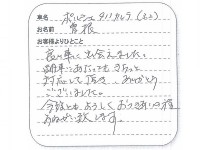 車名 ポルシェ タイカン
お名前 曽根
お客様よりひとこと
良い車に出会えました。
納車にあたってもきちっと
対応して頂き ありがとう
ございました。
今後ともよろしくおつきあいの程
お願い致します。